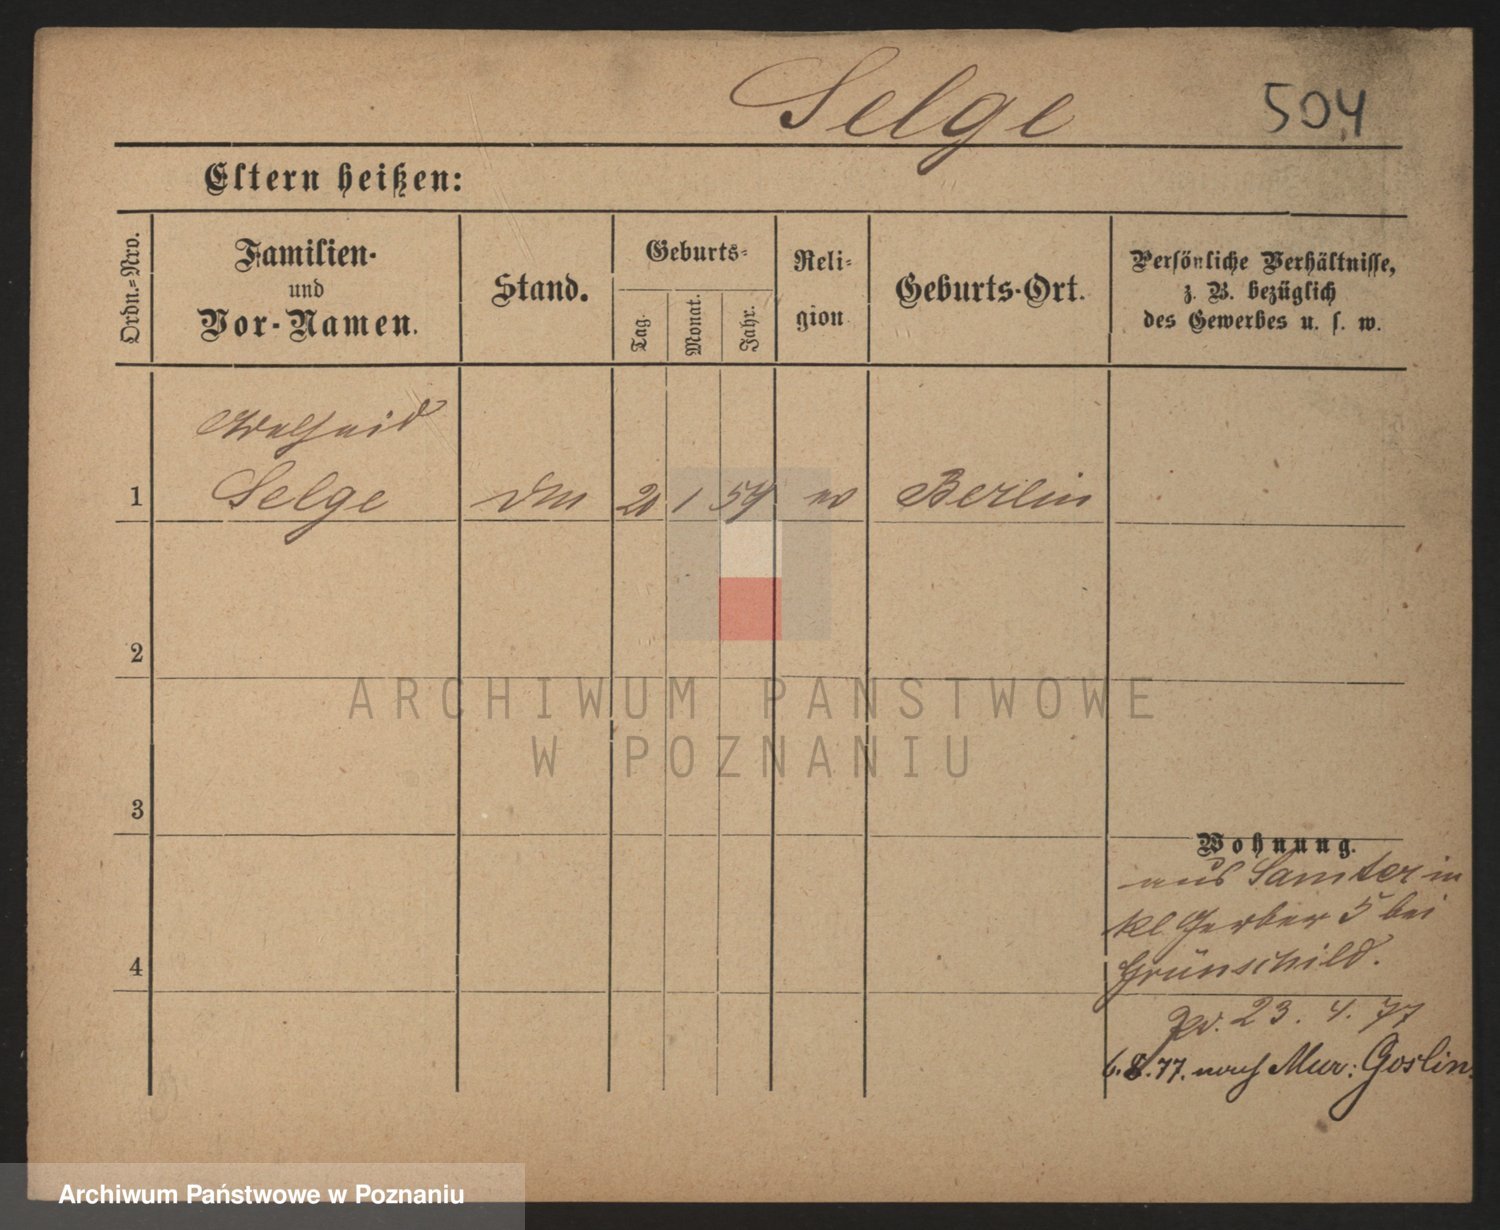 Selge 504
Eltern heißen:
Ordn.=Nro.
Familien-
und
Vor-Namen.
Stand.
Geburts-
Tag.
Monat.
Jahr.
Reli-
gion
Geburts-Ort.
Persönliche Verhältnisse,
z. B. bezüglich
des Gewerbes u. s. w.
1 Selge 20 1 54 Berlin
2
3
4
Wohnung.
aus Samter in
kl. Gerber 5 bei
Grünschild.
23. 4. 77
6.8.77. nach Mur: Goslin.
ARCHIWUM PAŃSTWOWE
W POZNANIU
Archiwum Państwowe w Poznaniu